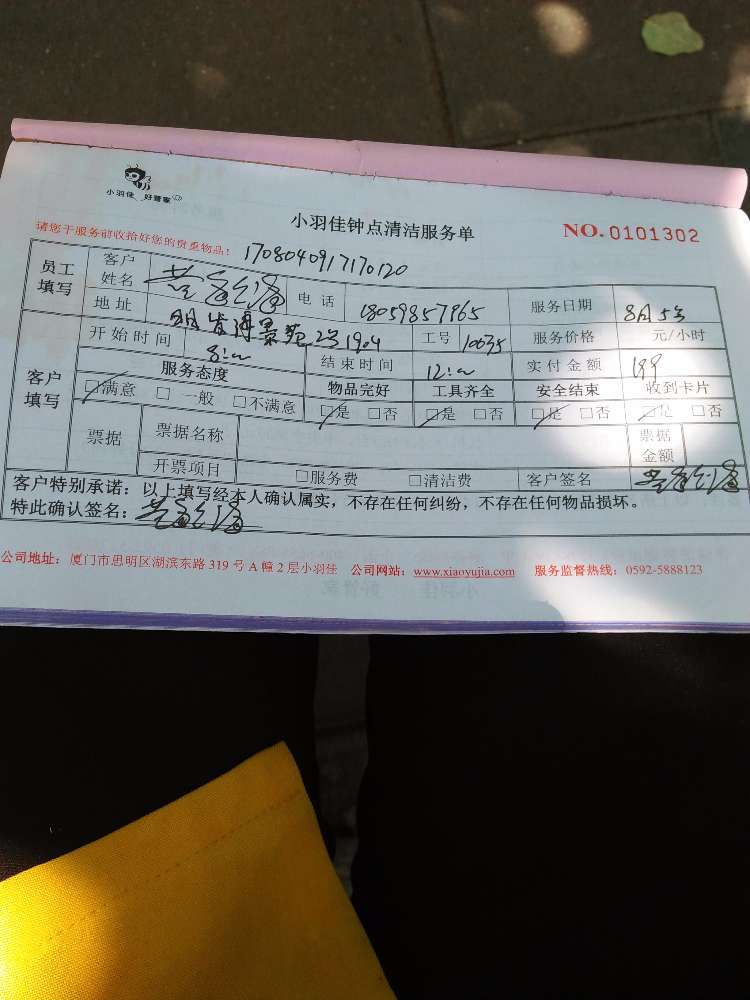 小羽佳 好管家
小羽佳钟点清洁服务单
NO. 0101302
请您于服务前收拾好您的贵重物品!
1708040917170120
员工填写 客户姓名 电话 18059857965 服务日期 8月5号
地址 2号1904 工号 10635 服务价格 元/小时
客户填写 开始时间 8:00 结束时间 12:00 实付金额 199
服务态度 物品完好 工具齐全 安全结束 收到卡片
□满意 □一般 □不满意 □是 □否 □是 □否 □是 □否 □是 □否
票据 票据名称 票据金额
开票项目 □服务费 □清洁费 客户签名
客户特别承诺:以上填写经本人确认属实,不存在任何纠纷,不存在任何物品损坏。
特此确认签名:
公司地址:厦门市思明区湖滨东路 319 号 A 幢 2 层小羽佳 公司网站:www.xiaoyujia.com 服务监督热线:0592-5888123